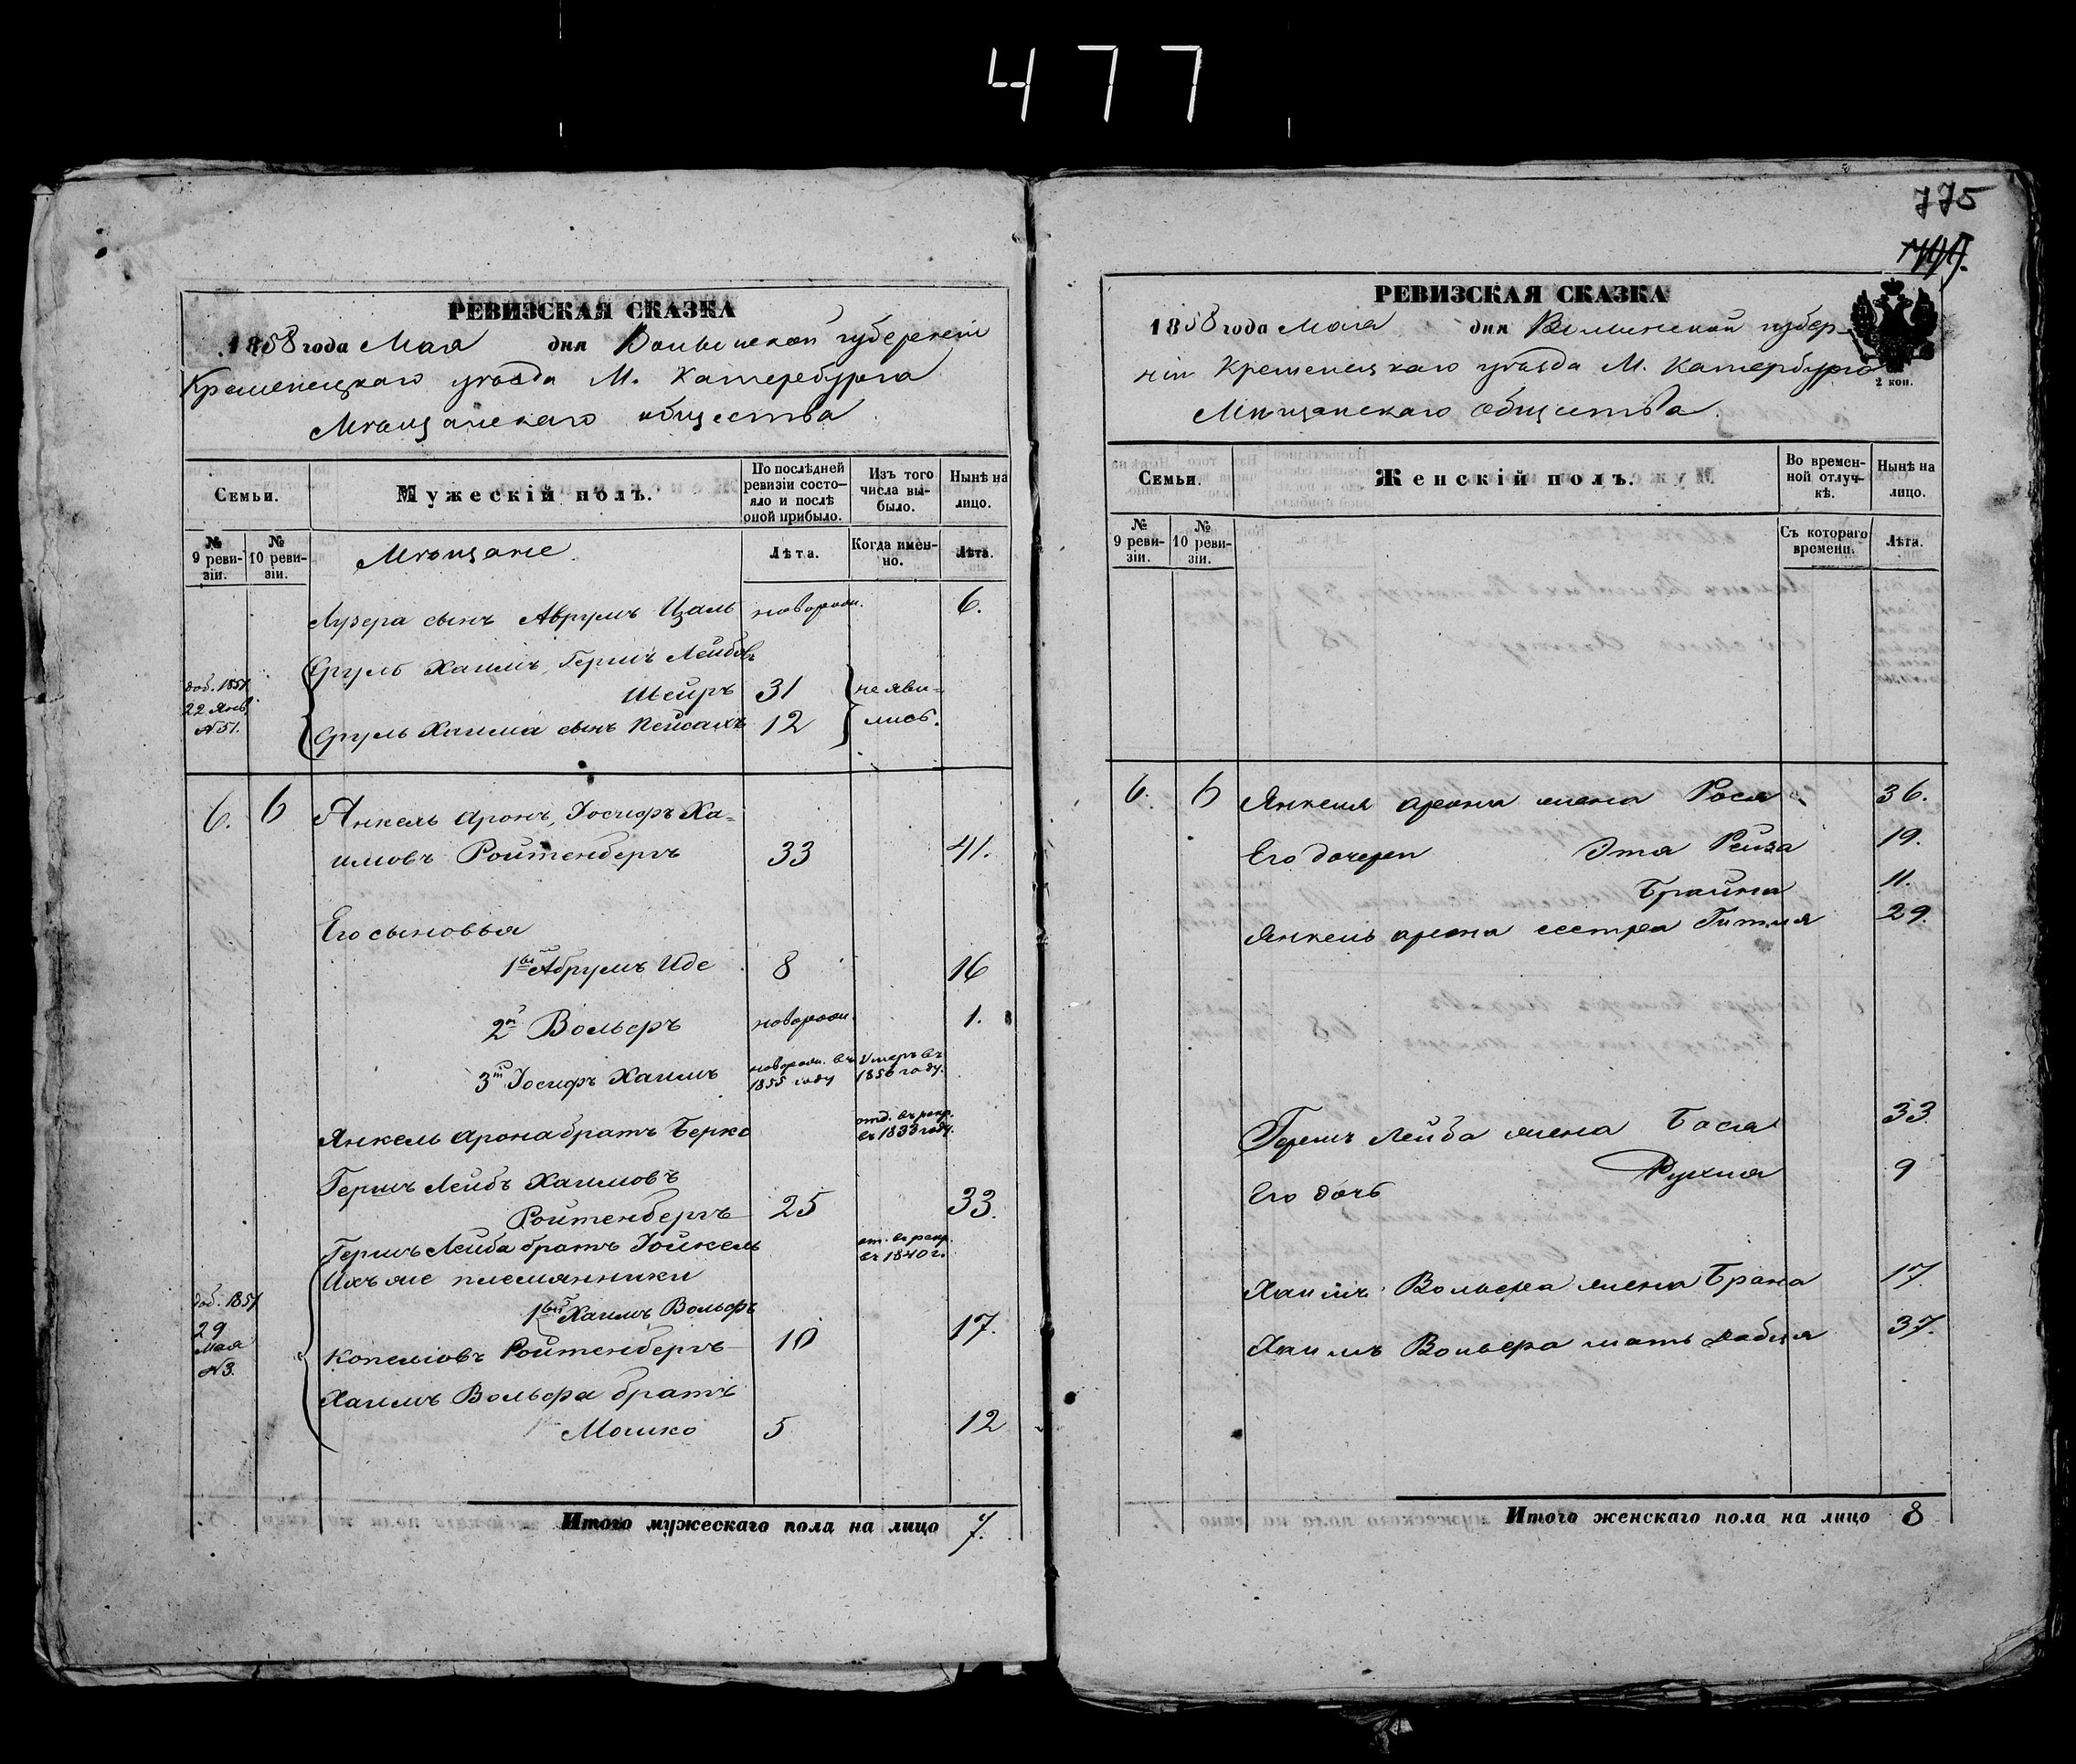 477
РЕВИЗСКАЯ СКАЗКА
1858 года Мая дня Волынской губерніи
Кременецкаго уѣзда М. Катеребурга
Мѣщанскаго общества
Семьи.
Мужескій полъ.
По послѣдней ревизіи состояло и послѣ оной прибыло.
Изъ того числа выбыло.
Нынѣ на лицо.
№ 9 ревизіи.
№ 10 ревизіи.
Мѣщане
Лѣта.
Когда именно.
Лѣта.
Лузера сынъ Аврумъ Цаль новорож. 6.
Сруль Хаимъ, Гершъ Лейбовъ
доб. 1851 Шейръ 31 не яви=
22 Янв. № 51. Сруль Хаима сынъ Пейсахъ 12 лись.
6. 6 Янкель Аронъ, Іосифъ Ха=
имовъ Ройтенбергъ 33 41.
Его сыновья
1й Абрумъ Иде 8 16
2й Вольфъ новорож. 1.
3й Іосифъ Хаимъ новорож. въ 1855 году умеръ въ 1856 году.
Янкель Арона братъ Берко отд. въ рекр. въ 1833 году.
Гершъ Лейбъ Хаимовъ
Ройтенбергъ 25 33.
Гершъ Лейба братъ Іойкель от. въ рекр. въ 1840 г.
Ихъ же племянники
доб. 1851 1й Хаимъ Вольфъ
29 Мая № 3. Копеліовъ Ройтенбергъ 10 17.
Хаимъ Вольфа братъ
Мошко 5 12
Итого мужескаго пола на лицо 7.
775
РЕВИЗСКАЯ СКАЗКА
1858 года Мая дня Волынской губер-
ніи Кременецкаго уѣзда М. Катербурга
2 коп.
Мѣщанскаго общества.
Семьи.
Женскій полъ.
Во временной отлучкѣ.
Нынѣ на лицо.
№ 9 ревизіи.
№ 10 ревизіи.
Съ котораго времени.
Лѣта.
6. 6 Янкеля Арона жена Рося 36.
Его дочери Эта Рейза 19.
Брайна 11.
Янкель Арона сестра Гитля 29.
Гершъ Лейба жена Бася 33
Его дочь Рухля 9
Хаимъ Вольфа жена Брана 17.
Хаимъ Вольфа мать 37.
Итого женскаго пола на лицо 8